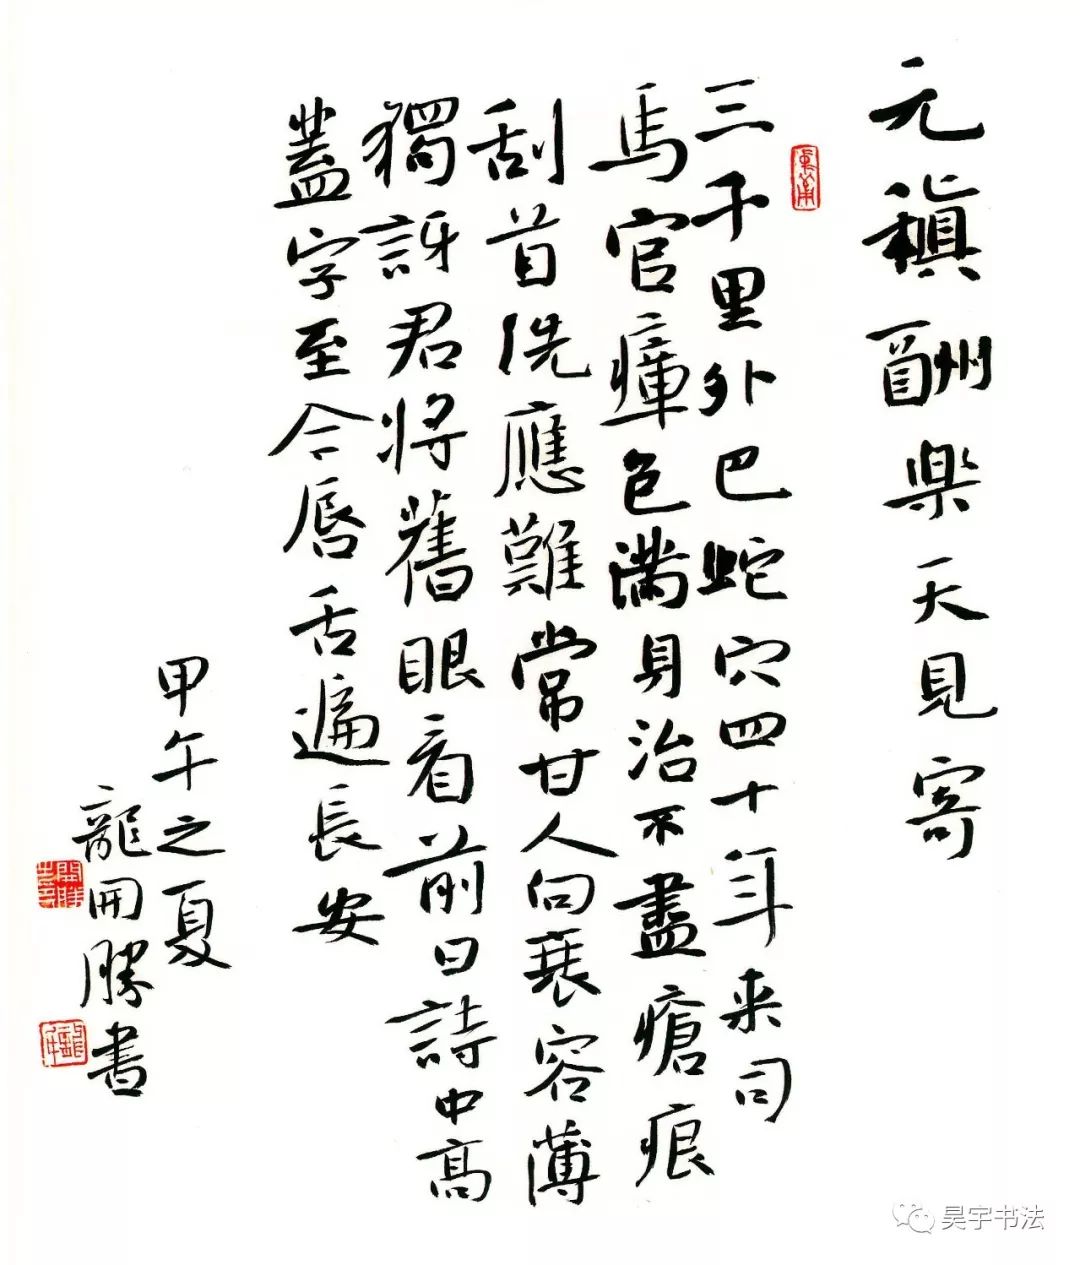 元稹酬樂天見寄
三千里外巴蛇穴四十年来司
馬官瘴色滿身治不盡瘡痕
刮首洗應難常甘人向衰容薄
獨訝君將舊眼看前日詩中高
蓋字至今唇舌遍長安
甲午之夏
龍開勝書
昊宇书法